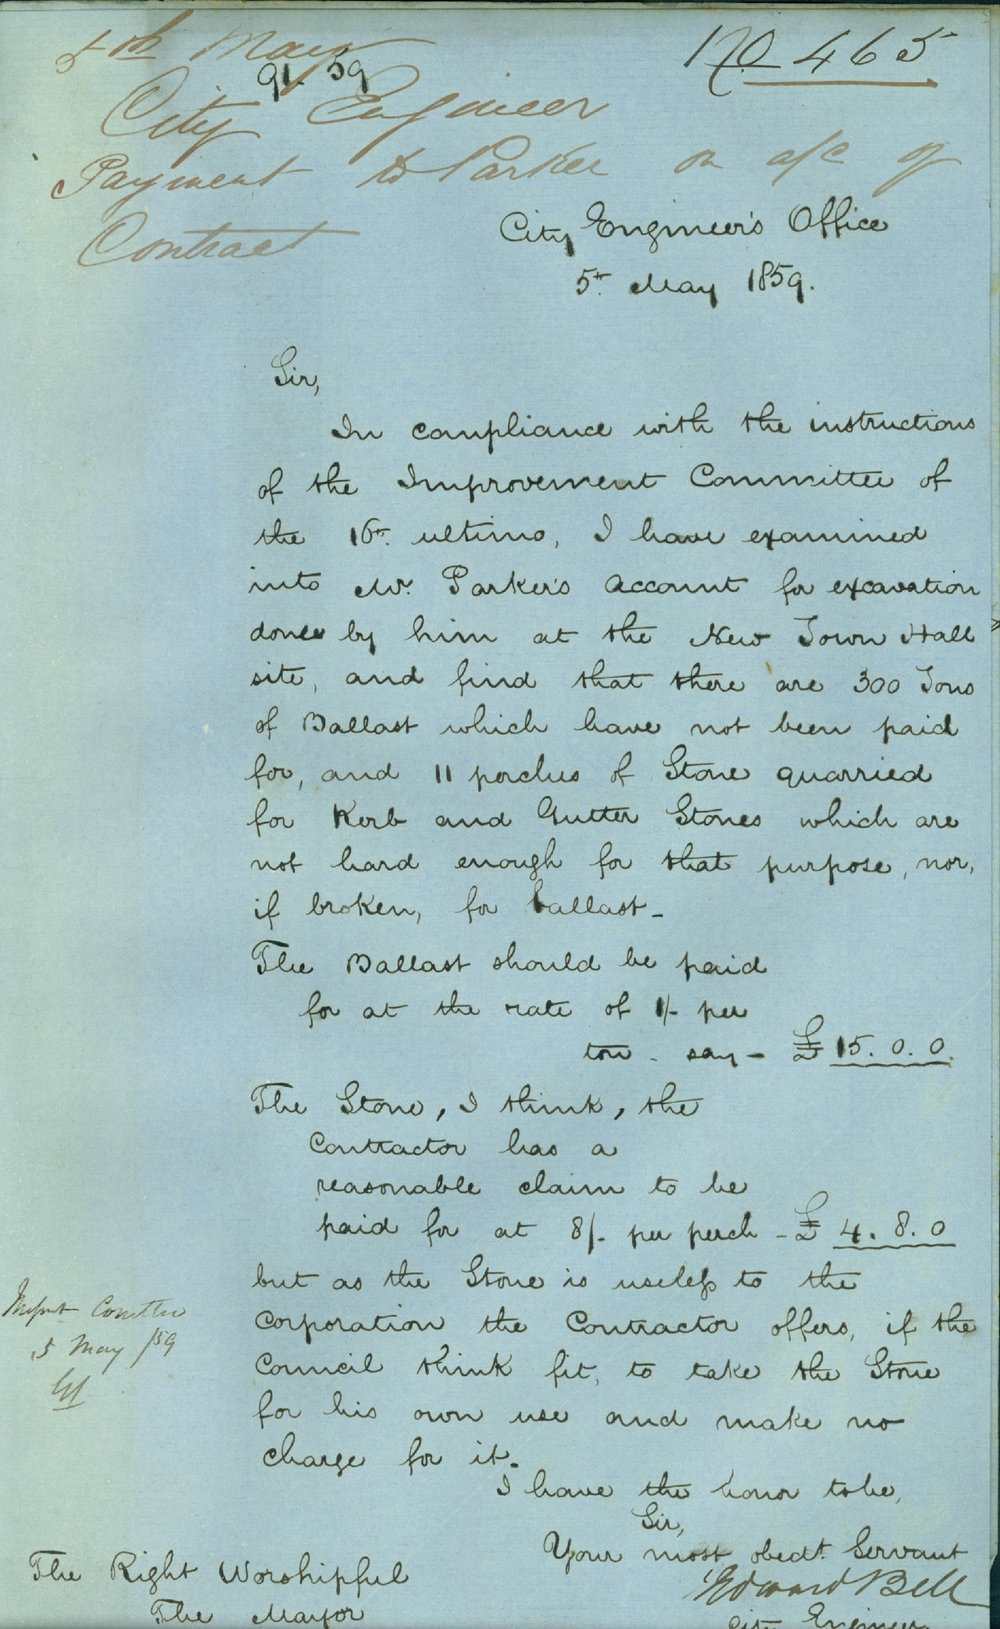 5th May
91. 59
No 465
City Engineer
Payment to Parker on a/c of
Contract
City Engineer's Office
5th May 1859.
Sir,
In compliance with the instructions
of the Improvement Committee of
the 16th ultimo, I have examined
into Mr. Parker's Account for excavation
done by him at the New Town Hall
site, and find that there are 300 Tons
of Ballast which have not been paid
for, and 11 perches of Stone quarried
for Kerb and Gutter Stones which are
not hard enough for that purpose, nor,
if broken, for ballast -
The Ballast should be paid
for at the rate of 1/- per
ton - say - £ 15. 0. 0.
The Stone, I think, the
Contractor has a
reasonable claim to be
paid for at 8/- per perch - £ 4. 8. 0
but as the Stone is useless to the
Corporation the Contractor offers, if the
Council think fit, to take the Stone
for his own use and make no
charge for it.
Improvt Comttee
5 May /59
I have the honor to be,
Sir,
Your most obedt. Servant
Edward Bell
City Engineer
The Right Worshipful
The Mayor